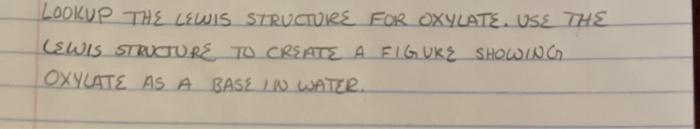 LOOKUP THE LEWIS STRUCTURE FOR OXYLATE. USE THE
LEWIS STRUCTURE TO CREATE A FIGURE SHOWING
OXYLATE AS A BASE IN WATER.